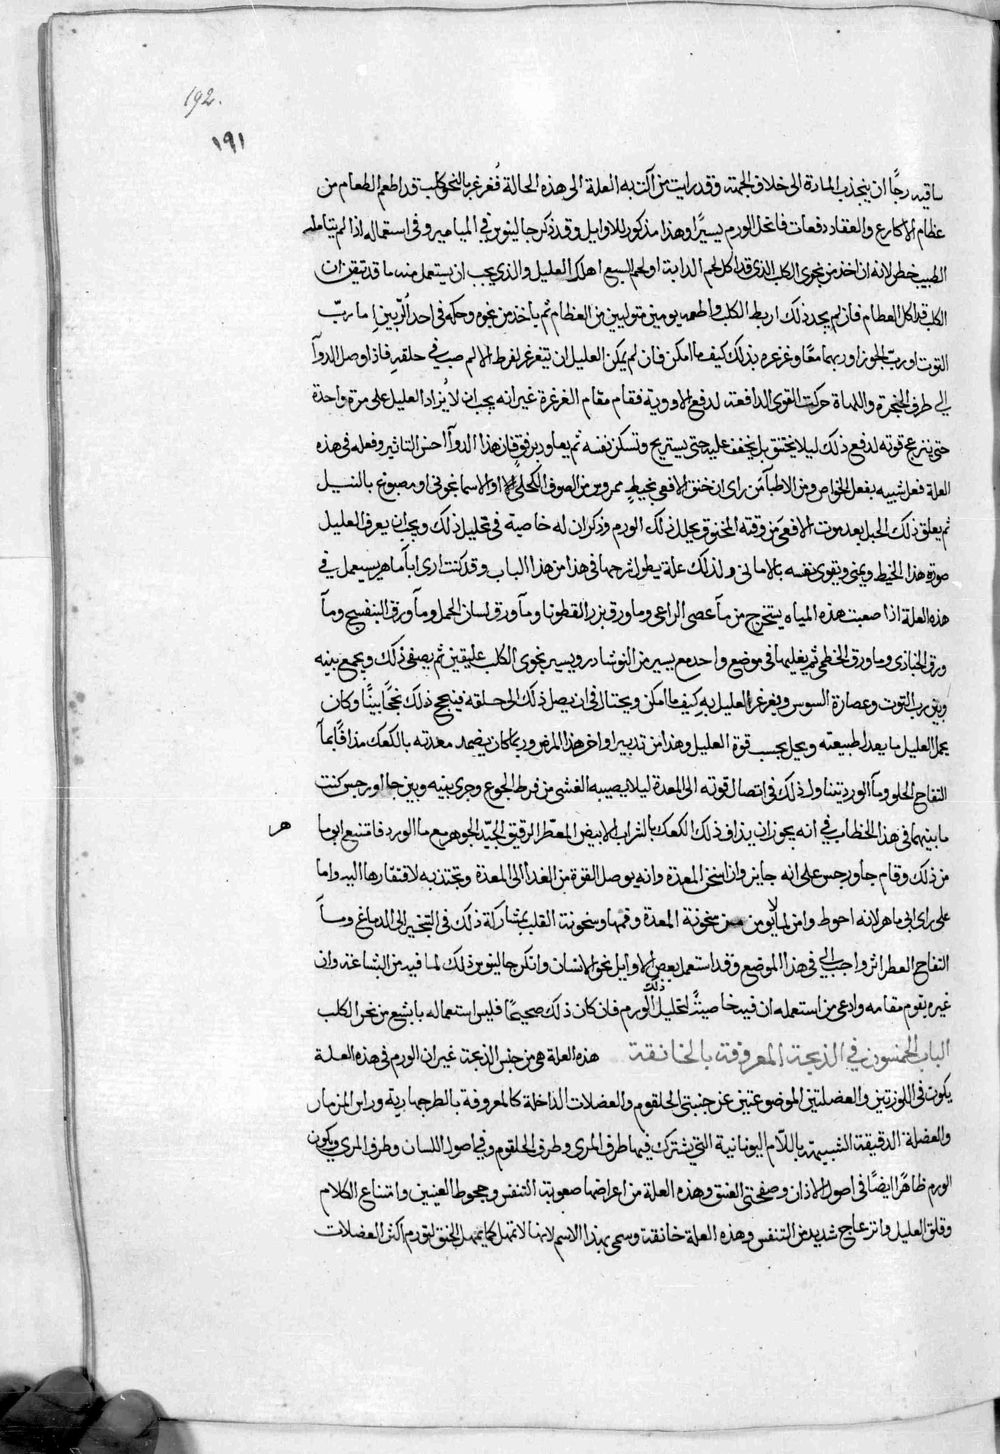 192.
١٩١
ساقيه رجًا ان ينجذب المادة الى خلاف الجهة وقد رايت من آلت به العلة الى هذه الحالة فغرغر بالنجو كلب قد اطعم الطعام من
عظام الاكارع والعقاد دفعات فانحل الورم يسيرًا وهذا مذكور للاوايل وقد ذكر جالينوس في الميامير وفى استعماله اذا لم يتامله
الطبيب خطر لانه ان اخذ من نجوى الكلب الذى قد اكل لحم الدابة او لحم السبع اهلك العليل والذي يجب ان يستعمل منه ما قد تيقن ان
الكلب قد اكل العظام فان لم يجد ذلك اربط الكلب واطعمه يومين متواليين من العظام ثم ياخذ من نجوه وحكه فى احد الربين اما ربّ
التوت او ربّ الجوز او ربهما معًا وغرغره بذلك كيف ما امكن فان لم يمكن العليل ان يتغرغر لفرط الالم صب في حلقه فاذا وصل الدوآ
الى طرف الحنجرة واللهاة حركت القوى الدافعة لدفع الاودية فقام مقام الغرغرة غير انه يجب ان لا يُزاد العليل على مرة واحدة
حتى نزعج قوته لدفع ذلك ليلا يختنق بل يخفف عليه حتى يستريح وتسكن نفسه ثم يعاود برفق فان هذا الدوآ احسن التاثير وفعله فى هذه
العلة فعل شبيه بفعل الخواص ومن الاطبآ من راى ان خنق الافعى بخيطٍ ممروس من الصوف الكحلى او الاسمانجونى او مصبوغ بالنيل
ثم يعلق ذلك الحبل بعد موت الافعى من رقبة المخنوق يحلل ذلك الورم وذكر ان له خاصية في تحليل ذلك ويجب ان يعرف العليل
صورة هذا الخيط ويمنى ويقوى نفسه بالامانى ولذلك علة يطول شرحها فى هذا من هذا الباب وقد كنت ارى اباماهر يستعمل في
هذه العلة اذا صعبت هذه المياه يستخرج من مآ عصى الراعى وما ورق بزر القطونا ومآ ورق لسان الحمل ومآ ورق البنفسج ومآ
ورق الخبازى وما ورق الخطمى ثم يغليها فى موضع واحد مع يسير من النوشادر ويسير نجوى الكلب غليتين ثم يصفى ذلك ويجمع بينه
وبين رب التوت وعصارة السوس ويغرغر العليل به كيف ما امكن ويحتال فى ان يصل ذلك الى حلقه فينجح ذلك نجحًا بينًا وكان
يحمل العليل ما يعدل طبيعته ويحل بحسب قوة العليل وهذا من تدبير اواخر هذا المرض وربما كان يضمد معدته بالكعك مذافًا بمآ
التفاح الحلو ومآ الورد يتناول ذلك فى اتصال قوته الى المعدة ليلا يصيبه الغشى من فرط الجوع وجرى بينه وبين جاورجس كنت
ما بينهما فى هذا الخطاب في انه يجوز ان يذاف ذلك الكعك بالشراب الابيض المعطر الرقيق الجيّد الجوهر مع ما الورد فامتنع ابوما
هر
من ذلك وقام جاورجس على انه جايز وان سخن المعدة وانه يوصل القوة من الغدآ الى المعدة وتجتذبه لافتقارها اليه واما
على راى ابى ماهر لانه احوط وامن لما لا يومن من سخونة المعدة وفمها وسخونة القلب بمشاركة ذلك فى التبخير الى الدماغ ومآ
التفاح العطر اثر واحب الي فى هذا الموضع وقد استعمل بعض الاوايل نجو الانسان وانكر جالينوس ذلك لما فيه من البشاعة وان
غيره يقوم مقامه وادعى من استعمله ان فيه خاصيةً لتحليل ذلك الورم فان كان ذلك صحيحًا فليس استعماله بابشع من نجو الكلب
الباب الخمسون في الذبحة المعروفة بالخانقة هذه العلة هى من جنس الذبحة غير ان الورم فى هذه العلة
يكون فى اللوزتين والعضلتين الموضوعتين عن جنبتى الحلقوم والعضلات الداخلة كالمعروفة بالطرجهارية وراس المزمار
والعضلة الدقيقة الشبيهة باللّام اليونانية التى يشترك فيها طرف المرى وطرف الحلقوم وفي اصول اللسان وطرف المرى ويكون
الورم ظاهرًا ايضًا فى اصول الاذان وصفحتى العنق وهذه العلة من اعراضها صعوبة التنفس وجحوظ العينين وامتناع الكلام
وقلق العليل وانزعاج شديد من التنفس وهذه العلة خانقة وسمى بهذا الاسم لانها لا تمهل كما يمهل الخنق لتورم اكثر العضلات